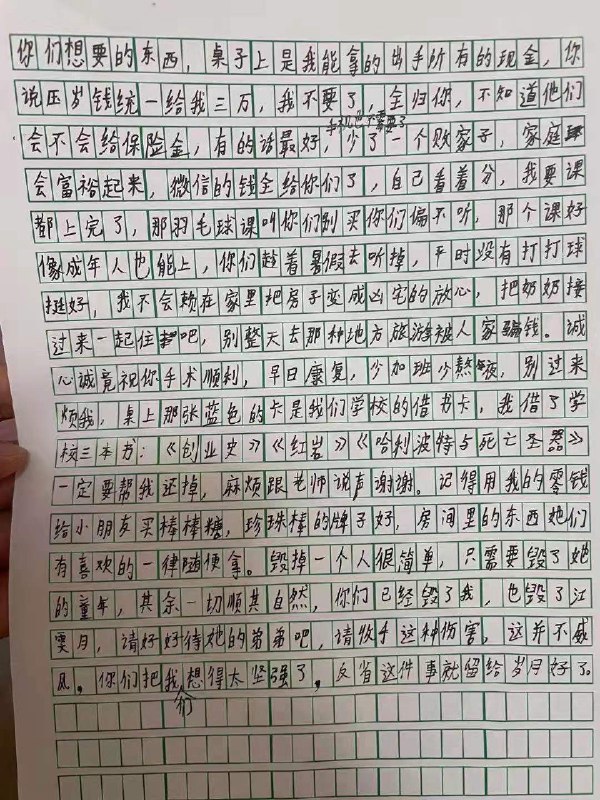 你们想要的东西，桌子上是我能拿的出手所有的现金，你
说压岁钱统一给我三万，我不要了，全归你，不知道他们
手机也不需要了
会不会给保险金，有的话最好，少了一个败家子，家庭
会富裕起来，微信的钱全给你们了，自己看着分，我要课
都上完了，那羽毛球课叫你们别买你们偏不听，那个课好
像成年人也能上，你们趁着暑假去听掉，平时没有打打球
挺好，我不会赖在家里把房子变成凶宅的放心，把奶奶接
过来一起住吧，别整天去那种地方旅游被人家骗钱。诚
心诚竟祝你手术顺利，早日康复，少加班少熬夜，别过来
烦我，桌上那张蓝色的卡是我们学校的借书卡，我借了学
校三本书：《创业史》《红岩》《哈利波特与死亡圣器》
一定要帮我还掉，麻烦跟老师说声谢谢。记得用我的零钱
给小朋友买棒棒糖，珍珠棒的牌子好，房间里的东西她们
有喜欢的一律随便拿。毁掉一个人很简单，只需要毁了她
的童年，其余一切顺其自然，你们已经毁了我，也毁了江
雯月，请好好待她的弟弟吧，请收手这种伤害，这并不威
风。你们把我们想得太坚强了，反省这件事就留给岁月好了。